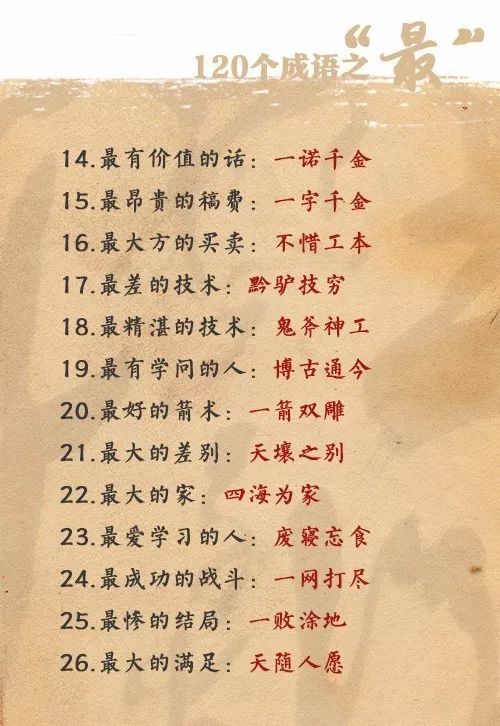 120个成语之“最”
14.最有价值的话：一诺千金
15.最昂贵的稿费：一字千金
16.最大方的买卖：不惜工本
17.最差的技术：黔驴技穷
18.最精湛的技术：鬼斧神工
19.最有学问的人：博古通今
20.最好的箭术：一箭双雕
21.最大的差别：天壤之别
22.最大的家：四海为家
23.最爱学习的人：废寝忘食
24.最成功的战斗：一网打尽
25.最惨的结局：一败涂地
26.最大的满足：天随人愿